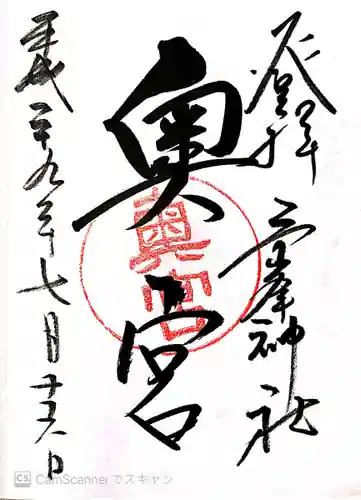 登拝 三峯神社
奥宮
奥宮
平成二十九年七月十六日
CS CamScannerでスキャン